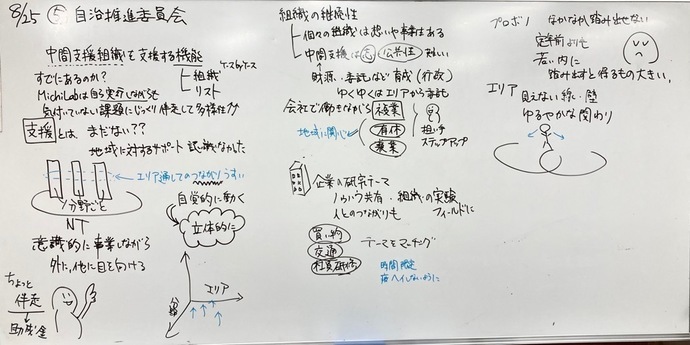 8/25 ⑤ 自治推進委員会
中間支援組織を支援する機能
ケースbyケース
すでにあるのか？
組織
リスト
MichiLabは自ら実行しながらも
気付いていない課題にじっくり伴走して多様性
支援とは、まだない？？
地域に対するサポート 試験なかった
エリア通してのつながりうすい
分野ごと
NT
自覚的に動く
立体的に
意識的に事業しながら
外に、他に目を向ける
ちょっと
伴走
助成金
分野
エリア
組織の継続性
個々の組織は想いや事情はある
中間支援は 公共性
財源・委託など 育成(行政)
ゆくゆくはエリアから委託
会社で働きながら
複業
有休
兼業
地域に関心
担い手
ステップアップ
企業の研究テーマ
ノウハウ共有・組織の実験
人とのつながりも
フィールドに
買い物
交通
社員研修
テーマとマッチング
時間限定
プロボノ なかなか踏み出せない
定年前よりも
若い内に
踏み出すと得るもの大きい。
エリア
見えない線・壁
ゆるやかな関わり